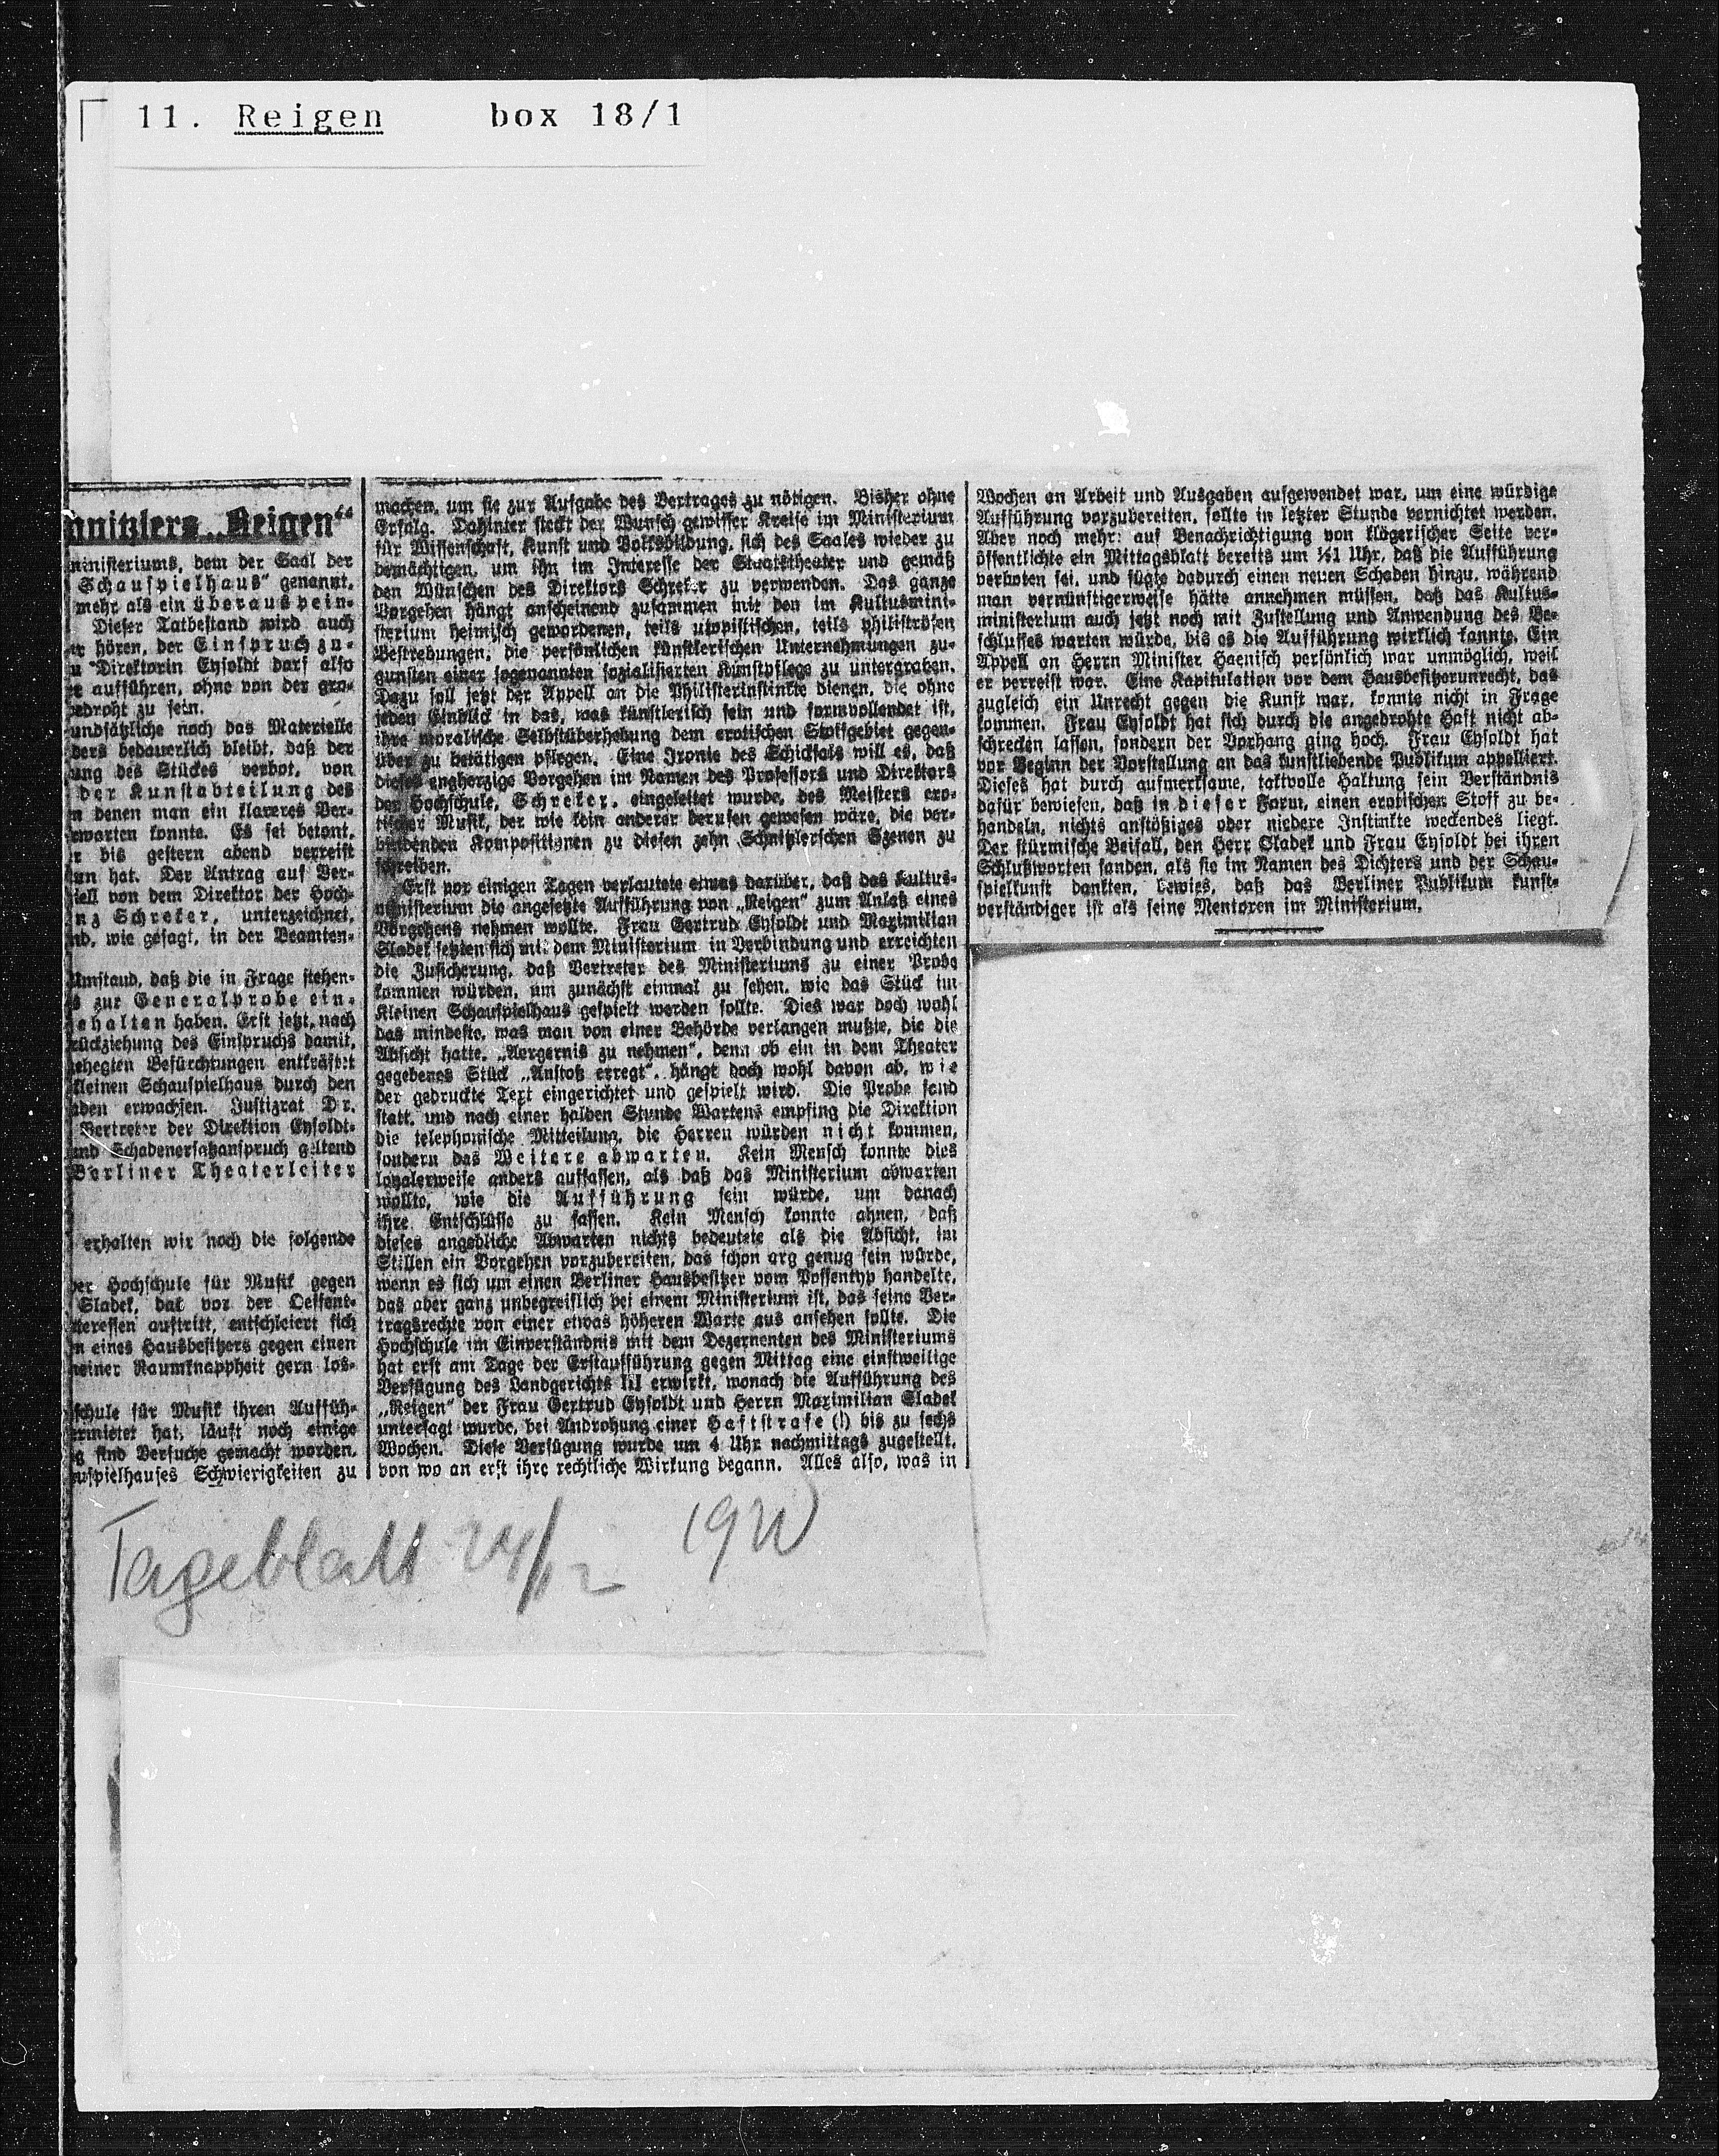 11. Reigen box 18/1
nitzlers „Reigen“
ministeriums, dem der Saal der
Schauspielhaus“ genannt,
mehr als ein überaus pein-
Dieser Tatbestand wird auch
hören, der Einspruch zu-
Direktorin Eysoldt darf also
aufführen, ohne von der gro-
edroht zu sein.
undsätzliche noch das Materielle
ders bedauerlich bleibt, daß der
ung des Stückes verbot, von
der Kunstabteilung des
denen man ein klareres Ver-
rwarten konnte. Es sei betont,
bis gestern abend verreist
hat. Der Antrag auf Ver-
iell von dem Direktor der Hoch-
nz Schreker, unterzeichnet,
nd, wie gesagt, in der Beamten-
Umstand, daß die in Frage stehen-
zur Generalprobe ein-
ehalten haben. Erst jetzt, nach
rückziehung des Einspruchs damit,
ehegten Befürchtungen entkräftet
Kleinen Schauspielhaus durch den
den erwachsen. Justizrat Dr.
Vertreter der Direktion Eysoldt-
und Schadenersatzanspruch geltend
Berliner Theaterleiter
erhalten wir noch die folgende
der Hochschule für Musik gegen
Sladek, das vor der Oeffent-
teressen auftritt, entschleiert sich
n eines Hausbesitzers gegen einen
einer Raumknappheit gern los-
schule für Musik ihren Auffüh-
rmietet hat, läuft noch einige
g sind Versuche gemacht worden,
uspielhauses Schwierigkeiten zu
machen, um sie zur Aufgabe des Vertrages zu nötigen. Bisher ohne
Erfolg. Dahinter steckt der Wunsch gewisser Kreise im Ministerium
für Wissenschaft, Kunst und Volksbildung, sich des Saales wieder zu
bemächtigen, um ihn im Interesse der Staatstheater und gemäß
den Wünschen des Direktors Schreker zu verwenden. Das ganze
Vorgehen hängt anscheinend zusammen mit den im Kultusmini-
sterium heimisch gewordenen, teils utopistischen, teils philiströsen
Bestrebungen, die persönlichen künstlerischen Unternehmungen zu-
gunsten einer sogenannten sozialisierten Kunstpflege zu untergraben.
Dazu soll jetzt der Appell an die Philisterinstinkte dienen, die ohne
jeden Einblick in das, was künstlerisch fein und formvollendet ist,
ihre moralische Selbstüberhebung dem erotischen Stoffgebiet gegen-
über zu betätigen pflegen. Eine Ironie des Schicksals will es, daß
dieses engherzige Vorgehen im Namen des Professors und Direktors
der Hochschule, Schreker, eingeleitet wurde, des Meisters ero-
tischer Musik, der wie kein anderer berufen gewesen wäre, die ver-
bindenden Kompositionen zu diesen zehn Schnitzlerschen Szenen zu
schreiben.
Erst vor einigen Tagen verlautete etwas darüber, daß das Kultus-
ministerium die angesetzte Aufführung von „Reigen“ zum Anlaß eines
Vorgehens nehmen wollte. Frau Gertrud Eysoldt und Maximilian
Sladek setzten sich mit dem Ministerium in Verbindung und erreichten
die Zusicherung, daß Vertreter des Ministeriums zu einer Probe
kommen würden, um zunächst einmal zu sehen, wie das Stück im
Kleinen Schauspielhaus gespielt werden sollte. Dies war doch wohl
das mindeste, was man von einer Behörde verlangen mußte, die die
Absicht hatte, „Aergernis zu nehmen“, denn ob ein in dem Theater
gegebenes Stück „Anstoß erregt“, hängt doch wohl davon ab, wie
der gedruckte Text eingerichtet und gespielt wird. Die Probe fand
statt, und nach einer halben Stunde Wartens empfing die Direktion
die telephonische Mitteilung, die Herren würden nicht kommen,
sondern das Weitere abwarten. Kein Mensch konnte dies
loyalerweise anders auffassen, als daß das Ministerium abwarten
wollte, wie die Aufführung sein würde, um danach
ihre Entschlüsse zu fassen. Kein Mensch konnte ahnen, daß
dieses angebliche Abwarten nichts bedeutete als die Absicht, im
Stillen ein Vorgehen vorzubereiten, das schon arg genug sein würde,
wenn es sich um einen Berliner Hausbesitzer vom Possentyp handelte,
das aber ganz unbegreiflich bei einem Ministerium ist, das seine Ver-
tragsrechte von einer etwas höheren Warte aus ansehen sollte. Die
Hochschule im Einverständnis mit dem Dezernenten des Ministeriums
hat erst am Tage der Erstaufführung gegen Mittag eine einstweilige
Verfügung des Landgerichts III erwirkt, wonach die Aufführung des
„Reigen“ der Frau Gertrud Eysoldt und Herrn Maximilian Sladek
untersagt wurde, bei Androhung einer Haftstrafe (!) bis zu sechs
Wochen. Diese Verfügung wurde um 4 Uhr nachmittags zugestellt,
von wo an erst ihre rechtliche Wirkung begann. Alles also, was in
Wochen an Arbeit und Ausgaben aufgewendet war, um eine würdige
Aufführung vorzubereiten, sollte in letzter Stunde vernichtet werden.
Aber noch mehr: auf Benachrichtigung von klägerischer Seite ver-
öffentlichte ein Mittagsblatt bereits um ½1 Uhr, daß die Aufführung
verboten sei, und fügte dadurch einen neuen Schaden hinzu, während
man vernünftigerweise hätte annehmen müssen, daß das Kultus-
ministerium auch jetzt noch mit Zustellung und Anwendung des Be-
schlusses warten würde, bis es die Aufführung wirklich kannte. Ein
Appell an Herrn Minister Haenisch persönlich war unmöglich, weil
er verreist war. Eine Kapitulation vor dem Hausbesitzerunrecht, das
zugleich ein Unrecht gegen die Kunst war, konnte nicht in Frage
kommen. Frau Eysoldt hat sich durch die angedrohte Haft nicht ab-
schrecken lassen, sondern der Vorhang ging hoch. Frau Eysoldt hat
vor Beginn der Vorstellung an das kunstliebende Publikum appelliert.
Dieses hat durch aufmerksame, taktvolle Haltung sein Verständnis
dafür bewiesen, daß in dieser Form, einen erotischen Stoff zu be-
handeln, nichts anstößiges oder niedere Instinkte weckendes liegt.
Der stürmische Beifall, den Herr Sladek und Frau Eysoldt bei ihren
Schlußworten fanden, als sie im Namen des Dichters und der Schau-
spielkunst dankten, bewies, daß das Berliner Publikum kunst-
verständiger ist als seine Mentoren im Ministerium.
Tageblatt 24/12 1920